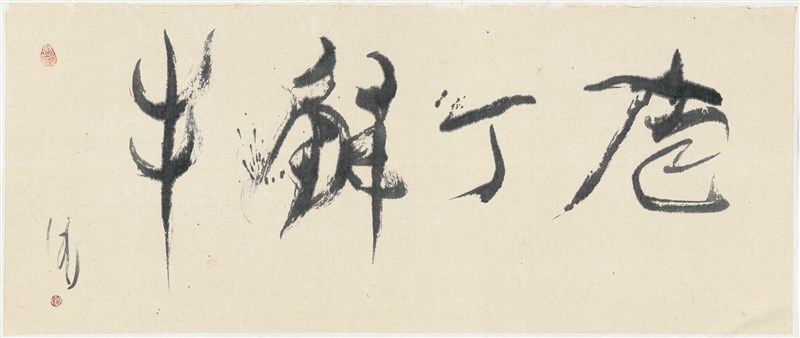 庖丁解牛